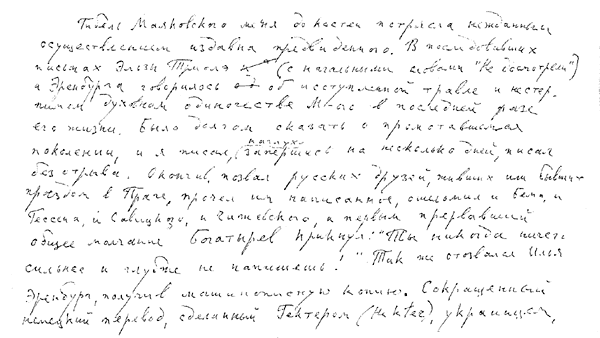 Гибель Маяковского меня до костей потрясла нежданным
осуществлением издавна предвиденного. В последовавших
письмах Эльзы Триолэ (с начальными словами "Не досмотрели")
и Эренбурга говорилось об исступленной травле и
духовном одиночестве М-ого в последней фазе
его жизни. Было долгом сказать о промотавшемся
поколении, и я писал, наглухо запершись на несколько дней, писал
без отрыва. Окончив, позвал русских друзей, живших или бывших
проездом в Праге, прочел им написанное, и
Гессена, и Савицкого, и Чижевского, и первым прервавший
общее молчание Богатырев крикнул: "Ты никогда ничего
сильнее и глубже не напишешь!" Так же отозвался Илья
Эренбург, получив машинописную копию. Сокращенный
немецкий перевод, сделанный Гектером (Hecter), украинцем,